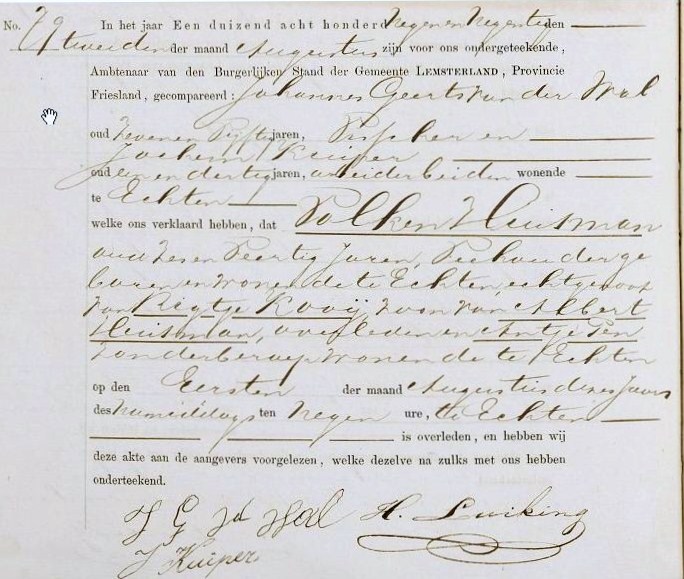 No. 79 In het jaar Een duizend acht honderd Negen en Negentig den
tweeden der maand Augustus zijn voor ons ondergeteekende,
Ambtenaar van den Burgerlijken Stand der Gemeente LEMSTERLAND, Provincie
Friesland, gecompareerd: Johannes Geerts van der Wal
oud Zeven en Vijftig jaren, Visscher en
Jochem Kuiper
oud een en dertig jaren, arbeider beiden wonende
te Echten
welke ons verklaard hebben, dat Folken Huisman
oud Zes en Veertig Jaren, Veehouder ge
boren en wonende te Echten, echtgenoot
van Rigtje Kooij, zoon van Albert
Huisman, overleden en Antje Pen
zonder beroep wonende te Echten
op den Eersten der maand Augustus dezes Jaars
des Namiddags ten Negen ure, te Echten
is overleden, en hebben wij
deze akte aan de aangevers voorgelezen, welke dezelve na zulks met ons hebben
onderteekend.
J G vd Wal H. Luiking
J Kuiper